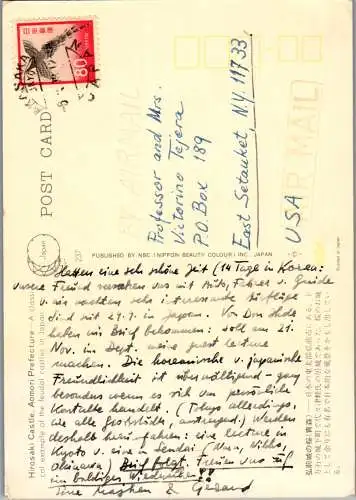 日本郵便
80
NIPPON
OSAKA
JAPAN
POST CARD
BY AIRMAIL
AIR MAIL
Professor and Mrs.
Victorino Tejera
P.O. Box 189
East Setauket, N.Y. 11733
USA
237
PUBLISHED BY NBC (NIPPON BEAUTY COLOUR) INC. JAPAN
Printed in Japan
Hatten eine sehr schöne Zeit (14 Tage in Korea:
unsere Freund versahen uns mit Auto, Fahrer u. Guide
u. wir machten sehr interessante Ausflüge
sind seit 29.9. in Japan. Von Don Ihde
haben wir Brief bekommen: soll am 21.
Nov. im Dept. meine guest lecture
machen. Die koreanische u. japanische
Freundlichkeit ist überwältigend - ganz
besonders wenn es sich um persönliche
Kontakte handelt. (Tokyo allerdings,
wie alle Großstädte, anstrengend.) Werden
deshalb hier fahren: eine lecture in
Kyoto u. eine in Sendai (Nara, Nikko,
Okinawa) Brief folgt. Freuen uns auf
ein baldiges Wiedersehen
Eure & Gerard
Hirosaki Castle, Aomori Prefecture